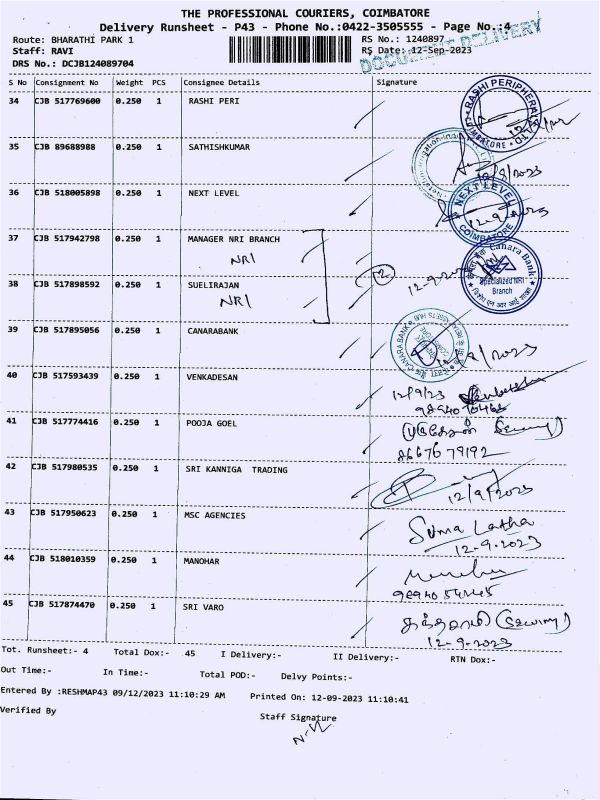 THE PROFESSIONAL COURIERS, COIMBATORE
Delivery Runsheet - P43 - Phone No.:0422-3505555 - Page No.:4
Route: BHARATHI PARK 1 RS No.: 1240897
Staff: RAVI RS Date: 12-Sep-2023
DOCUMENT DELIVERY
DRS No.: DCJB124089704
S No Consignment No Weight PCS Consignee Details Signature
34 CJB 517769600 0.250 1 RASHI PERI
RASHI PERIPHERALS
COIMBATORE
35 CJB 89688988 0.250 1 SATHISHKUMAR
12/9/2023
36 CJB 518005898 0.250 1 NEXT LEVEL
NEXT LEVEL
COIMBATORE
12-9-2023
37 CJB 517942798 0.250 1 MANAGER NRI BRANCH
NRI
Canara Bank
Specialized NRI
Branch
38 CJB 517898592 0.250 1 SUELIRAJAN
NRI
2
39 CJB 517895056 0.250 1 CANARABANK
CANARA BANK
40 CJB 517593439 0.250 1 VENKADESAN
12/9/23
41 CJB 517774416 0.250 1 POOJA GOEL
86676 79192
42 CJB 517980535 0.250 1 SRI KANNIGA TRADING
12/9/2023
43 CJB 517950623 0.250 1 MSC AGENCIES
Suma Latha
12-9-2023
44 CJB 518010359 0.250 1 MANOHAR
45 CJB 517874470 0.250 1 SRI VARO
12-9-2023
Tot. Runsheet:- 4 Total Dox:- 45 I Delivery:- II Delivery:- RTN Dox:-
Out Time:- In Time:- Total POD:- Delvy Points:-
Entered By :RESHMAP43 09/12/2023 11:10:29 AM Printed On: 12-09-2023 11:10:41
Verified By
Staff Signature